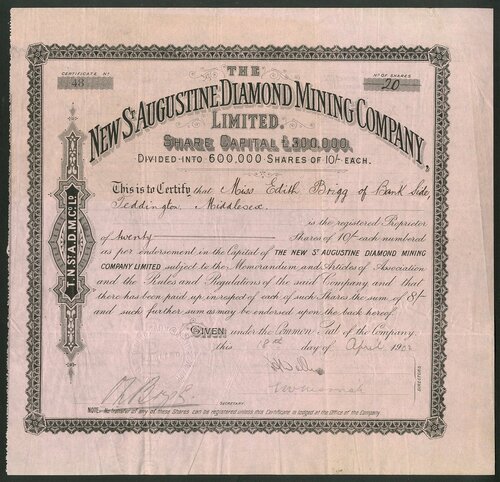 CERTIFICATE Nº
48
Nº OF SHARES
20
THE
NEW ST AUGUSTINE DIAMOND MINING COMPANY,
LIMITED.
SHARE CAPITAL £300,000,
DIVIDED INTO 600,000 SHARES OF 10/- EACH.
This is to Certify that Miss Edith Brigg of Bank Side,
Teddington, Middlesex
is the registered Proprietor
of twenty Shares of 10/- each numbered
as per endorsement in the Capital of THE NEW ST AUGUSTINE DIAMOND MINING
COMPANY LIMITED subject to the Memorandum and Articles of Association
and the Rules and Regulations of the said Company and that
there has been paid up in respect of each of such Shares the sum of 8/-
and such further sum as may be endorsed upon the back hereof.
GIVEN under the Common Seal of the Company,
this 18th day of April 190
DIRECTORS.
SECRETARY.
NOTE: No transfer of any of these Shares can be registered unless this Certificate is lodged at the Office of the Company.
T.N.S.A.D.M.C. LD.